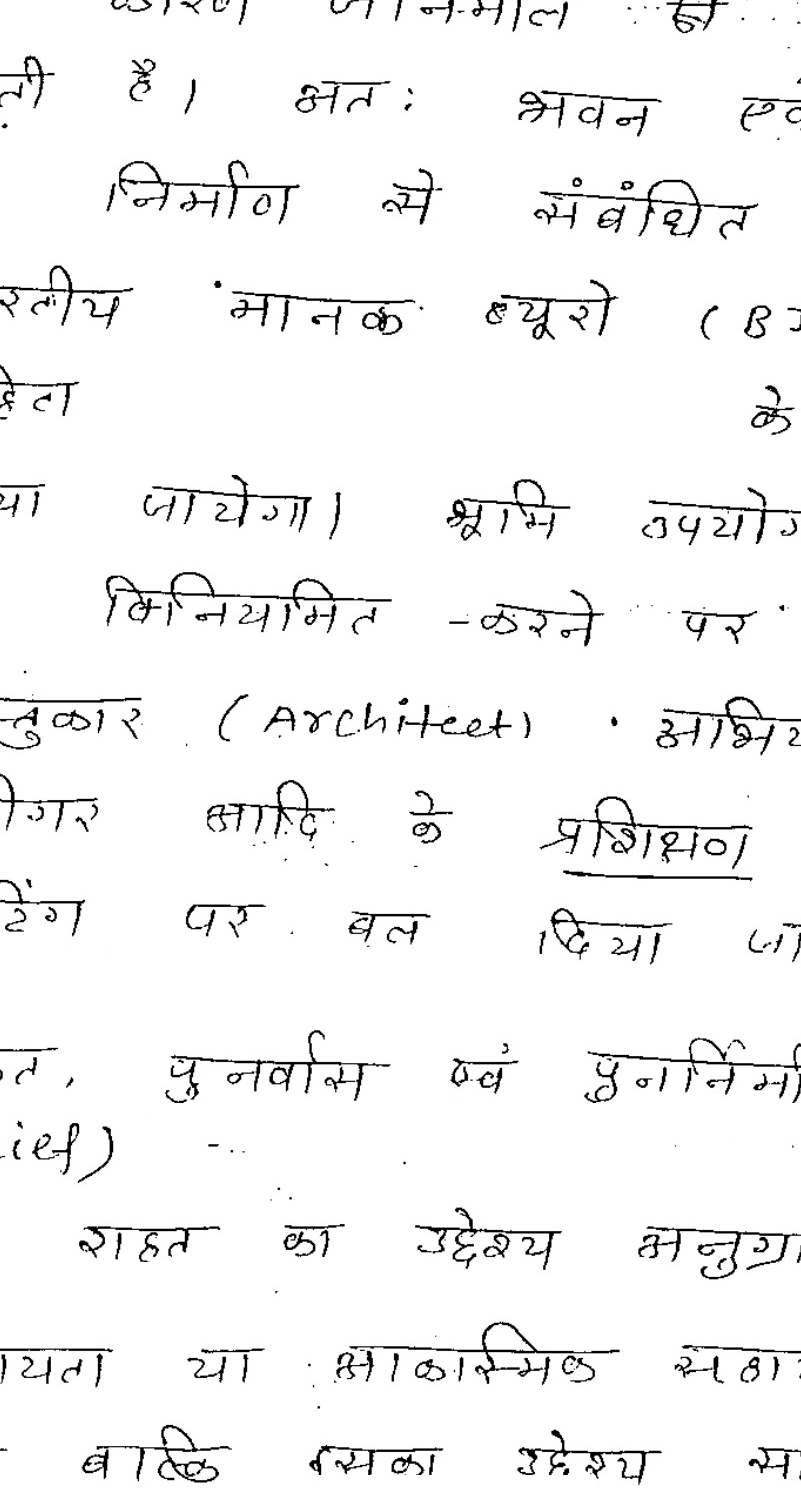 कारण जानमाल
ती है। अतः भवन एवं
निर्माण से संबंधित
रतीय मानक ब्यूरो (B
हिता के
या जायेगा। भूमि उपयोग
विनियमित करने पर
स्तुकार (Architect) अभिय
ीगर आदि के प्रशिक्षण
टिंग पर बल दिया जा
हत, पुनर्वास एवं पुनर्निर्मा
lief)
राहत का उद्देश्य अनुग्रा
ायता या आकास्मिक सहा
बल्कि इसका उद्देश्य सा